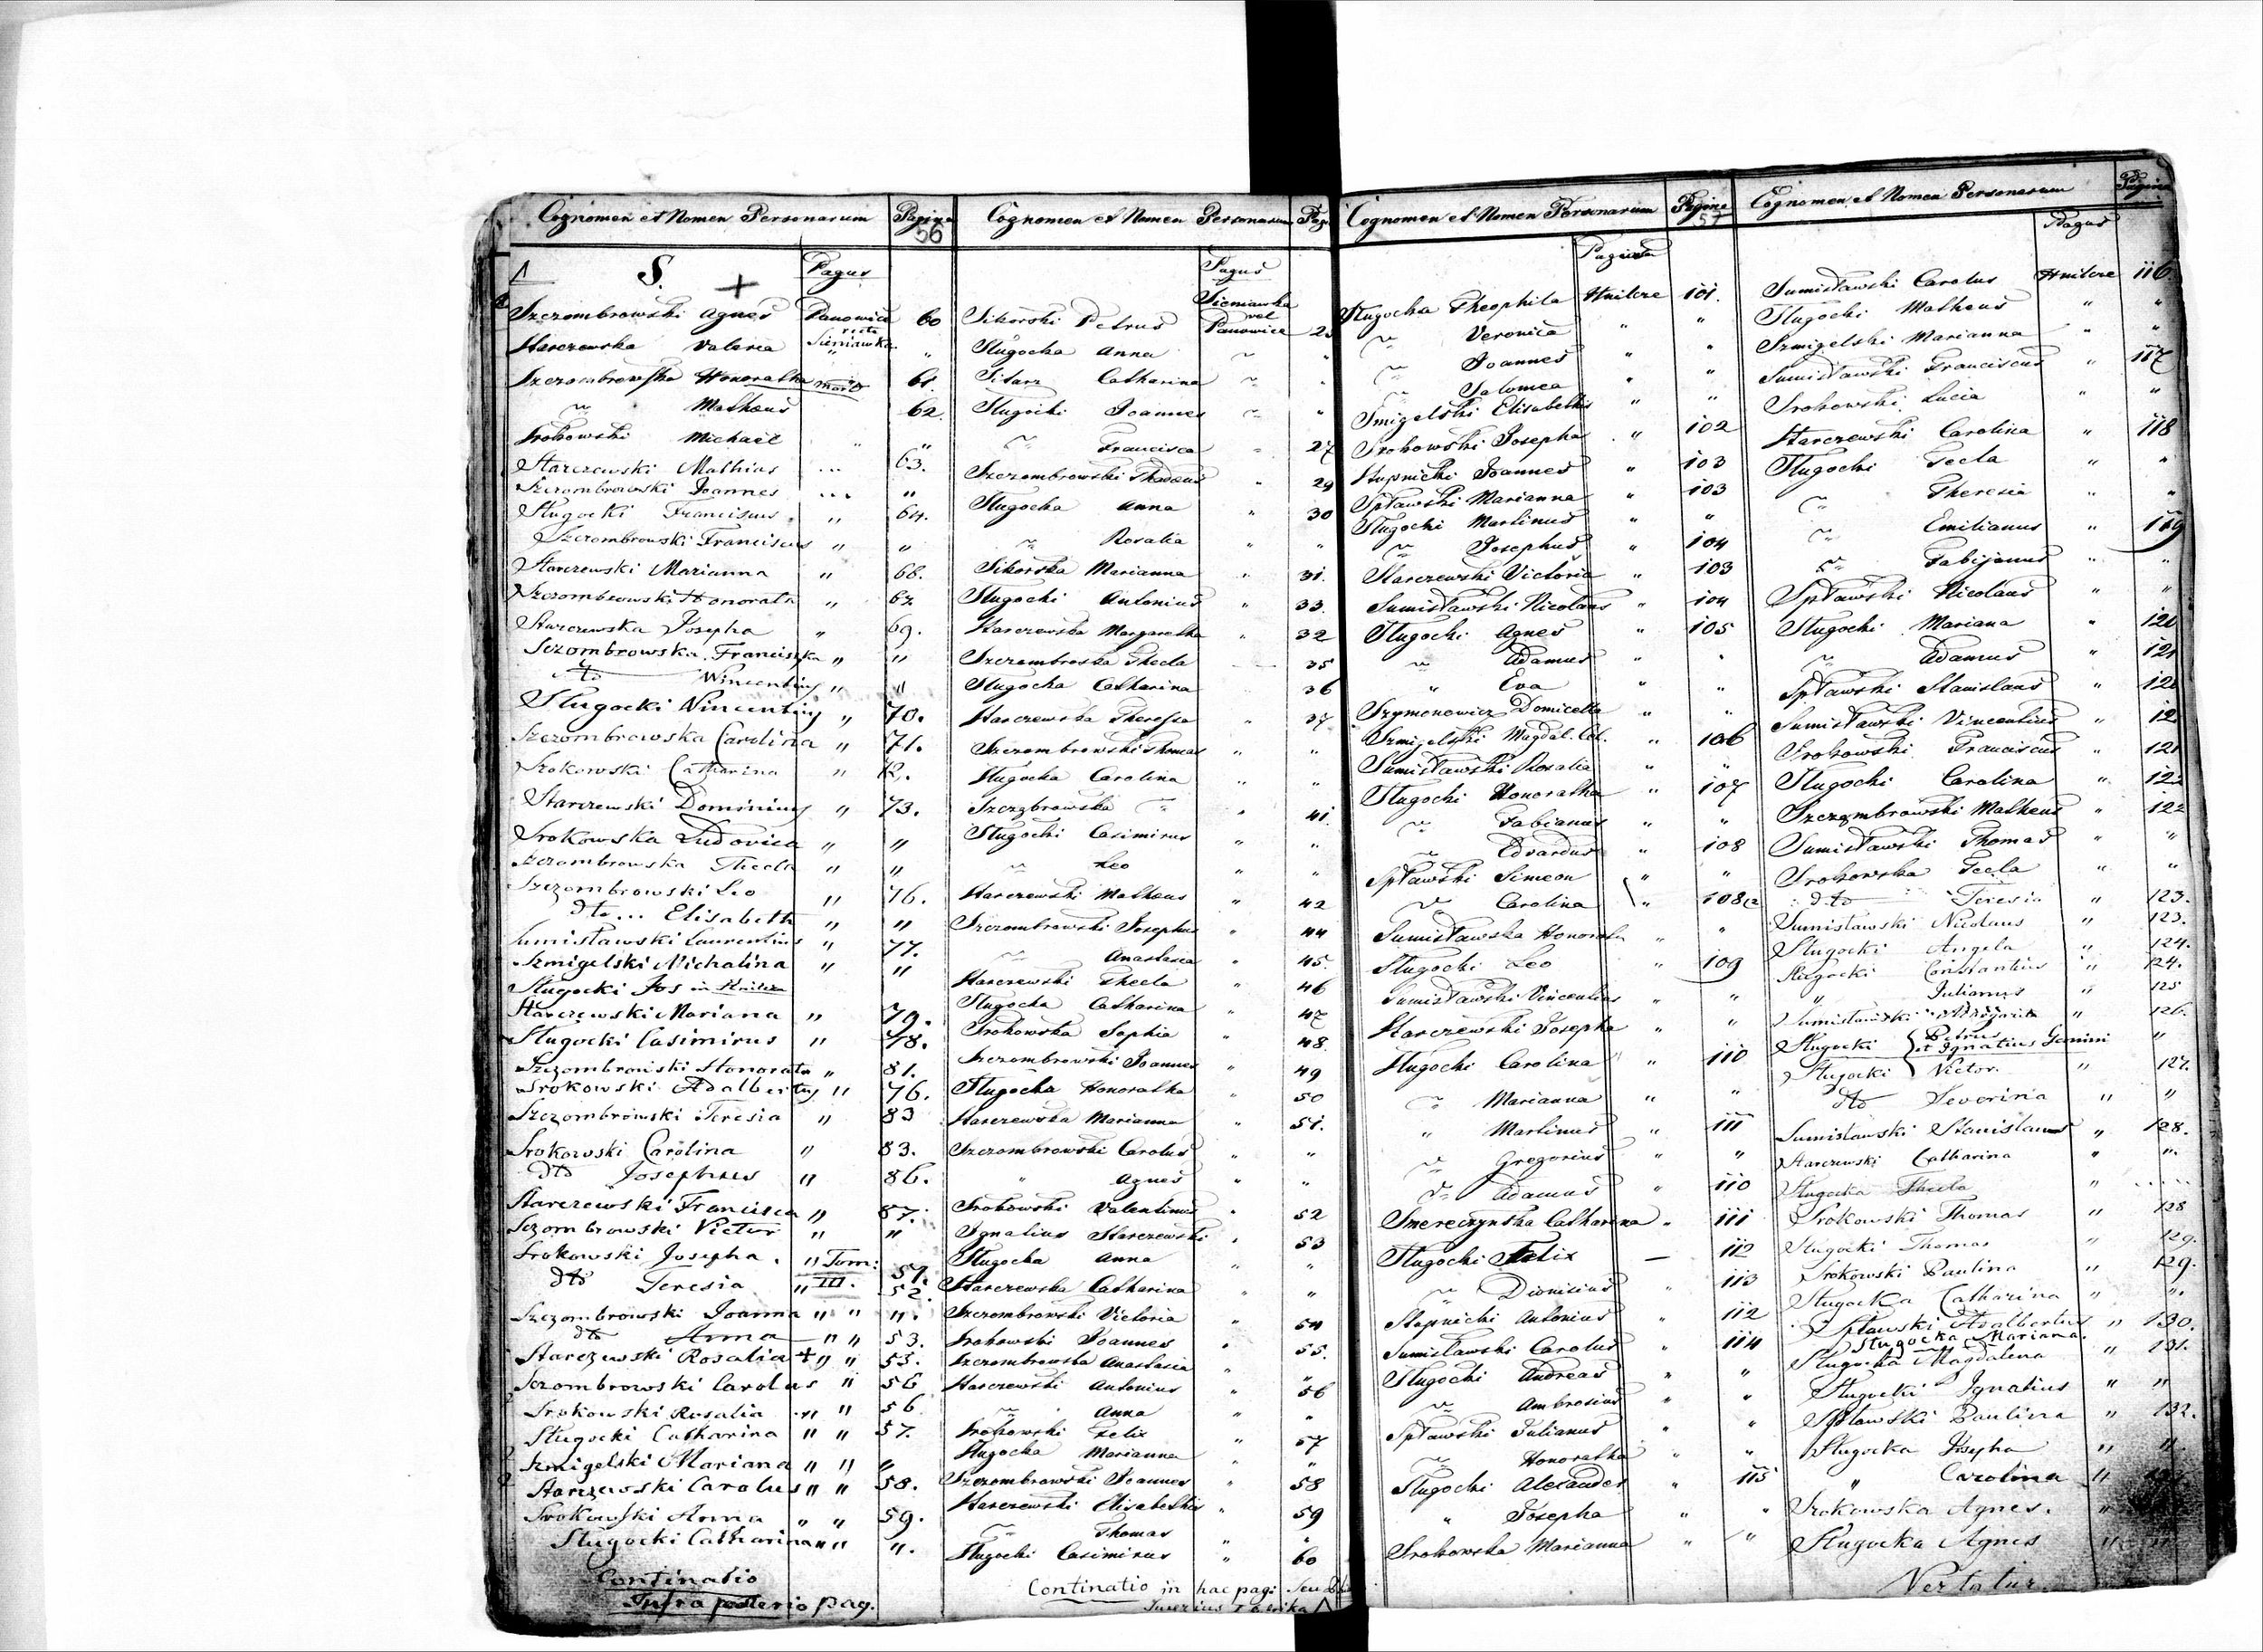 Cognomen et Nomen Personarum Pagina
56
1 S. + Pagus
Szczombrowski Agnes Panowice 60
recte
Starczewska Valeria Sieniawka "
Szczombrowska Honoratha " 61.
" Mathæus 62
Srokowski Michael " "
Starczewski Mathias ... 63.
Szczombrowski Joannes ... "
Sługocki Franciscus " 64.
Szczombrowski Franciscus " "
Starczewski Marianna " 68.
Szczombrowski Honorata " 67
Starczewska Josepha " 69.
Sczombrowska Franciszka " "
dto Wincentius " "
Sługocki Wincentius " 70.
Szczombrowska Carolina " 71.
Srokowski Catharina " 72.
Starczewski Dominicus " 73.
Srokowska Ludovica " "
Szczombrowska Thecla " "
Szczombrowski Leo " 76.
dto... Elisabeth " "
Sumisławski Laurentius " 77.
Szmigelski Michalina " "
Sługocki Jos in Hnilcze
Starczewski Mariana " 79.
Sługocki Casimirus " 78.
Szczombrowski Honorata " 81.
Srokowski Adalbertus " 76.
Szczombrowski Teresia " 83
Srokowski Carolina " 83.
dto Josephus " 86.
Starczewski Francisca " 87.
Sczombrowski Victor " "
Srokowski Josepha. " Tom: 51.
dto Teresia " III. 52.
Szczombrowski Joanna " " ".
dto Anna " " 53.
Starczewski Rosalia + " " 53.
Sczombrowski Carolus " 56
Srokowski Rosalia " " 56
Sługocki Catharina " " 57.
Szmigelski Mariana " " "
Starczewski Carolus " " 58.
Srokowski Anna " " 59.
Sługocki Catharina " " ".
Continatio
Infra posterio pag.
Cognomen et Nomen Personarum Pag
Pagus
Sieniawka
vel
Sikorski Petrus Panowice
Sługocka Anna " "
Sitarz Catharina " "
Sługocki Joannes " "
" Francisca " 27
Szczombrowski Thadæus " 29
Sługocka Anna " 30
" Rosalia " "
Sikorska Marianna " 31.
Sługocki Antonius " 33.
Starczewska Margaretha " 32
Szczombroska Thecla 35
Sługocka Catharina 36
Starczewska Theresia " 37
Szczombrowski Thomas " "
Sługocka Carolina " "
Szczębrowska " " 41.
Sługocki Casimirus " "
" Leo " "
Starczewski Mathæus " 42
Szczombrowski Josephus " 44
" Anastasia " 45.
Starczewski Thecla " 46
Sługocka Catharina " 47
Srokowska Sophia " 48.
Szczombrowski Joannes " 49
Sługocka Honoratha " 50
Starczewska Marianna " 51.
Szczombrowski Carolus " "
" Agnes " "
Srokowski Valentinus " 52
Ignatius Starczewski " 53
Sługocka Anna " "
Starczewska Catharina " "
Szczombrowski Victoria " 54
Srokowski Joannes " 55.
Szczombrowska Anastasia " "
Starczewski Antonius " 56
" Anna " "
Srokowski Felix " 57
Sługocka Marianna " "
Szczombrowski Joannes " 58
Starczewski Elisabetha " 59
" Thomas "
Sługocki Casimirus " 60
Continatio in hac pagi
Cognomen et Nomen Personarum Pagina
57
Sługocka Theophila Hnilcze 101.
" Veronica " "
" Joannes " "
" Salomea " "
Smigelski Elisabetha " "
Srokowski Josepha " 102
Stupnicki Joannes " 103
Spławski Marianna " 103
Sługocki Martinus " "
" Josephus " 104
Starczewski Victoria " 103
Sumisławski Nicolaus " 104
Sługocki Agnes " 105
" Adamus " "
" Eva " "
Szymonowicz Domicella " "
Szmigelski Magdal. Cat. " 106
Sumisławski Rosalia " "
Sługocki Honoratha " 107
" Fabianus " "
" Edvardus " 108
Spławski Simeon " "
" Carolina " 108
Sumisławska Honorata " "
Sługocki Leo " 109
Sumisławski Vincentius " "
Starczewski Josepha " "
Sługocki Carolina " 110
" Marianna " "
" Martinus " 111
" Gregorius " "
" Adamus " 110
Smereczynska Catharina " 111
Sługocki Felix — 112
" Dionisius " 113
Stupnicki Antonius " 112
Sumisławski Carolus " 114
Sługocki Andreas " "
" Ambrosius " "
Spławski Julianus " "
" Honoratha " "
Sługocki Alexander " 115
" Josepha " "
Srokowska Marianna " "
Cognomen et Nomen Personarum Pagina
Pagus
Sumisławski Carolus Hnilcze 116.
Sługocki Matheus " "
Szmigelski Marianna " "
Sumisławski Franciscus " 117
Srokowski Lucia " "
Starczewski Carolina " 118
Sługocki Tecla " "
" Theresia " "
" Emilianus " 119
" Fabijanus " "
Spławski Nicolaus " "
Sługocki Mariana " 120
" Adamus " 121
Spławski Stanislaus " 120
Sumisławski Vincentius "
Srokowski Franciscus " 121
Sługocki Carolina " 122
Szczębrowski Matheus " 122
Sumisławski Thomas " "
Srokowska Tecla " "
dto Teresia " 123.
Sumisławski Nicolaus " 123.
Sługocki Angela " 124.
Sługocki Constantius " 124.
" Julianus " 125
Sumisławski " 126.
Sługocki Petrus et Ignatius Gemini "
Sługocki Victor. " 127.
dto Severina " "
Sumisławski Stanislaus " 128.
Starczewski Catharina " "
Sługocka Thecla " .....
Srokowski Thomas " 128
Sługocki Thomas " 129.
Srokowski Paulina " 129.
Sługocka Catharina " ".
Spławski Adalbertus " 130.
Sługocka Mariana.
Sługocka Magdalena " 131.
Sługocki Ignatius " "
Spławski Paulina " 132.
Sługocka Josepha " "
" Carolina "
Srokowska Agnes. "
Sługocka Agnes "
Vertatur.